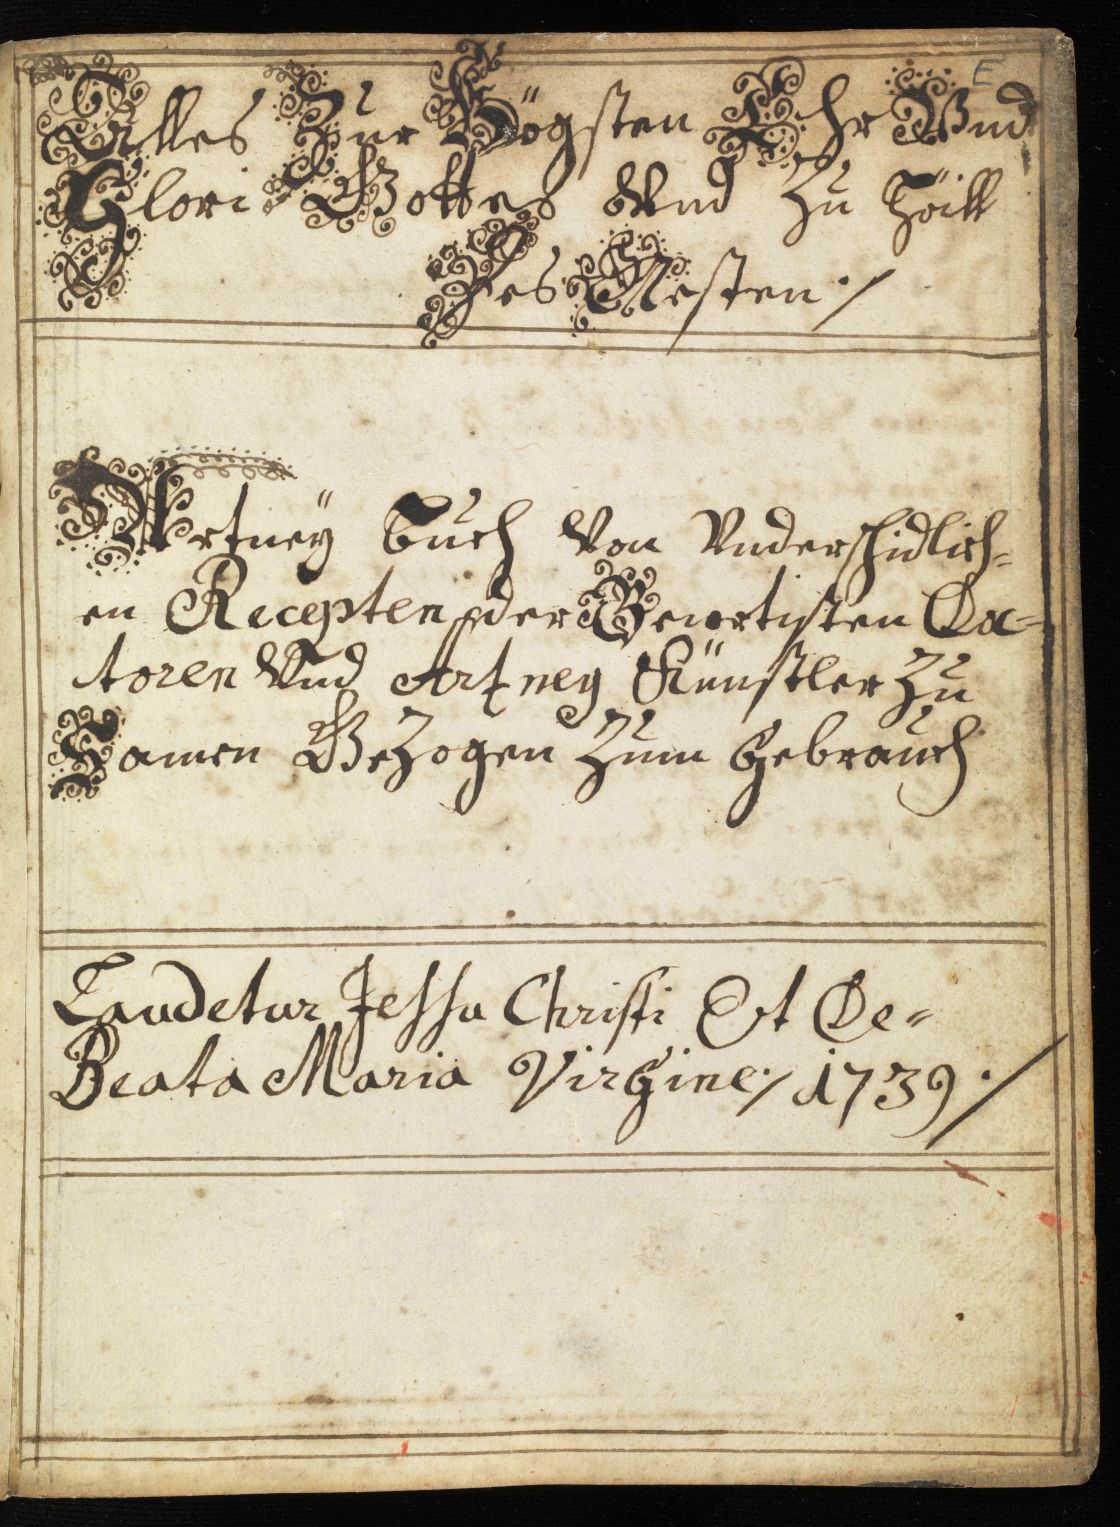 E
Alles Zur Högsten Ehr Vnd
Glori Gottes Vnd Zu Höill
Des Nesten ·/
Artzneÿ Buch Von Vnderschidlich=
en Recepten der Docu=
toren Vnd Artzney Künstler Zu
Samen Gezogen Zum Gebrauch
Laudetur Jehsu Christi Et De=
Beata Maria Virgine·/ 1739 ·/